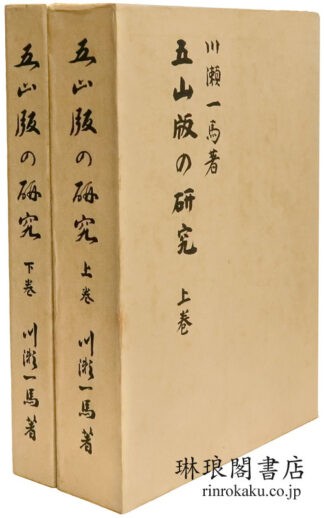 川瀬一馬著
五山版の研究 上巻
五山版の研究 上巻 川瀬一馬著
五山版の研究 下巻 川瀬一馬著
琳琅閣書店
rinrokaku.co.jp